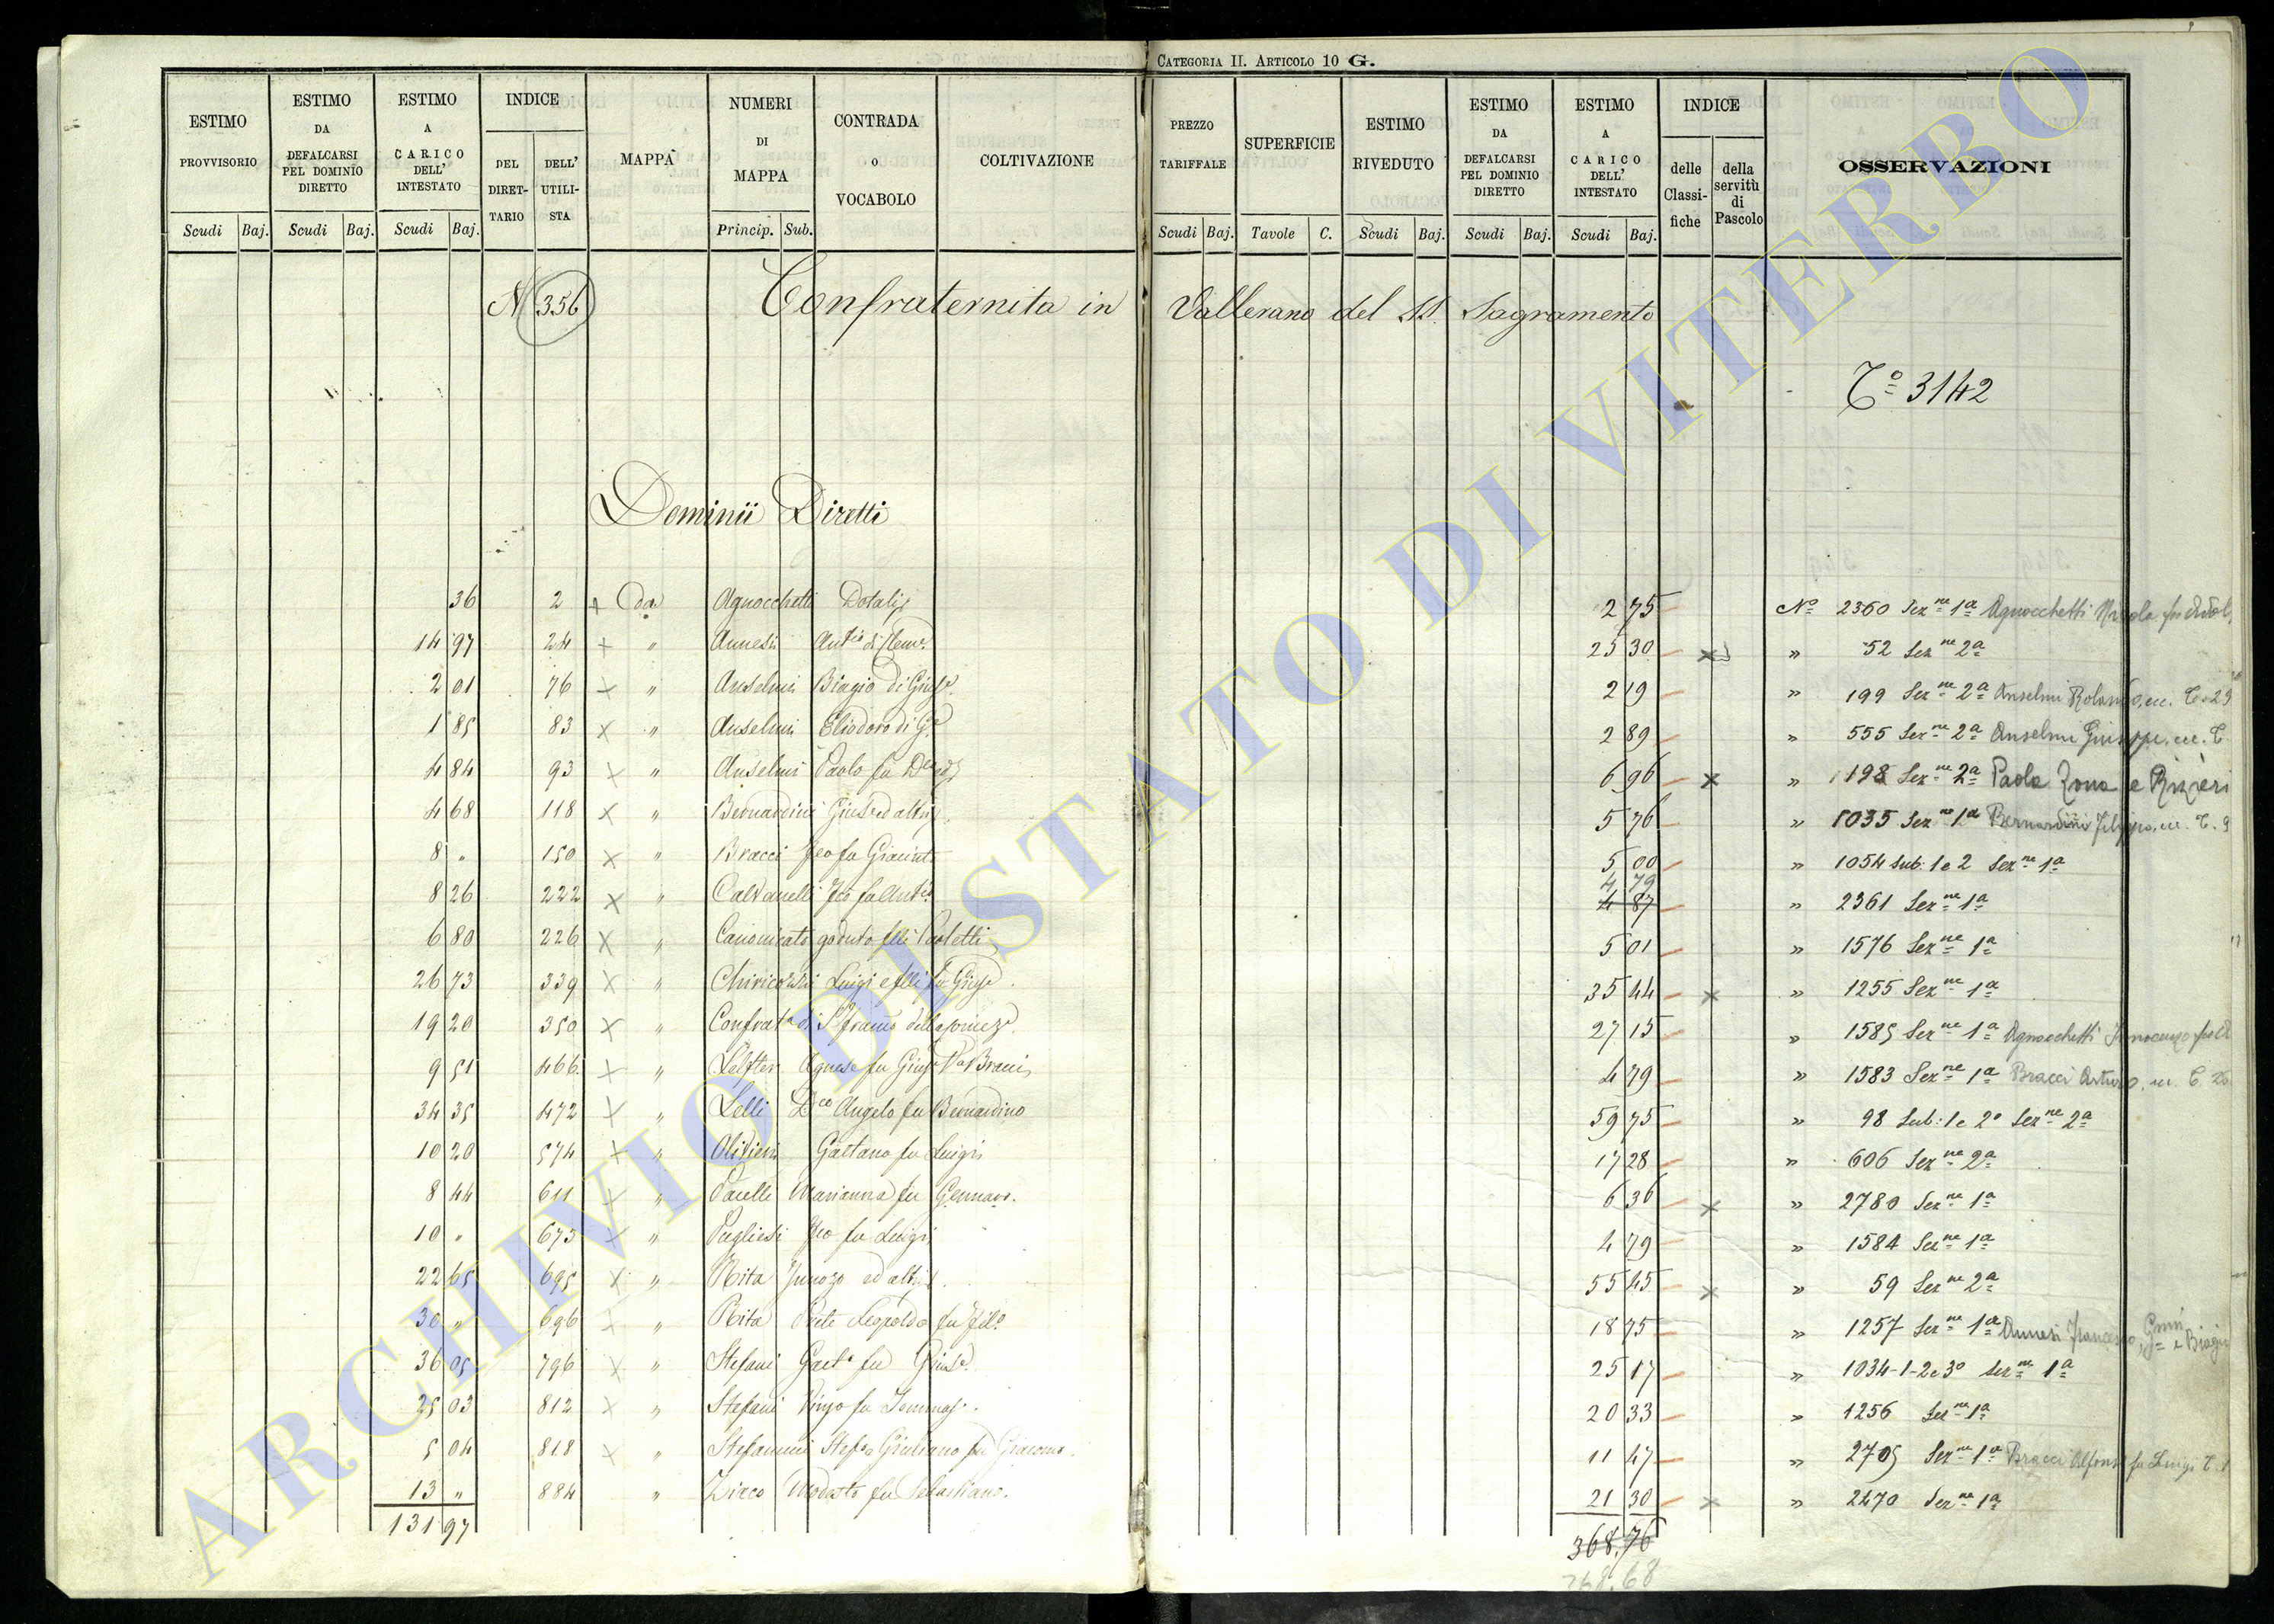 CATEGORIA II. ARTICOLO 10 G.
ESTIMO PROVVISORIO Scudi Baj.
ESTIMO DA DEFALCARSI PEL DOMINIO DIRETTO Scudi Baj.
ESTIMO A CARICO DELL' INTESTATO Scudi Baj.
INDICE DEL DIRET-TARIO DELL' UTILI-STA
MAPPA
NUMERI DI MAPPA Princip. Sub.
CONTRADA O VOCABOLO
COLTIVAZIONE
PREZZO TARIFFALE Scudi Baj.
SUPERFICIE Tavole C.
ESTIMO RIVEDUTO Scudi Baj.
ESTIMO DA DEFALCARSI PEL DOMINIO DIRETTO Scudi Baj.
ESTIMO A CARICO DELL' INTESTATO Scudi Baj.
INDICE delle Classi-fiche della servitù di Pascolo
OSSERVAZIONI
N 356 Confraternita in Vallerano del SS. Sagramento
Tº 3142
Dominii Diretti
36 2 + Da Agnocchetti 2 75 Nº 2360 Sezne 1ª Agnocchetti
14 97 24 × " Annesi Antio di 25 30 × " 52 Sezne 2ª
2 01 76 × " Anselmi Biagio di Giuse 2 19 " 199 Sezne 2ª Anselmi Rolando, ecc. T. 29
1 85 83 × " Anselmi Eliodoro di Ge 2 89 " 555 Sezne 2ª Anselmi Giuseppe, ecc. T
4 84 93 × " Anselmi Paolo fu 6 96 × " 198 Sezne 2ª Paola Zona e Rizieri
4 68 118 × " Bernardini Giuse ed altri 5 76 " 1035 Sezne 1ª Bernardini Filippo, ecc. T. 9
8 " 150 × " Bracci Fco fu Giacinto 5 00 " 1054 sub: 1 e 2 Sezne 1ª
4 79
8 26 222 × " Calvanelli Fco fu Anto 4 87 " 2361 Sezne 1ª
6 80 226 × " Canonicato goduto Paoletti 5 01 " 1576 Sezne 1ª
26 73 339 × " Chiricozzi Luigi e flli fu Giuse 35 44 × " 1255 Sezne 1ª
19 20 350 × " Confrata di S. 27 15 " 1585 Sezne 1ª Agnocchetti Innocenzo
9 51 466 × " Agnese fu Giuse Va Bracci 4 79 " 1583 Sezne 1ª Bracci Arturo, ecc. T.
34 35 472 × " Lelli Dco Angelo fu Bernardino 59 75 " 98 Sub: 1 e 2º Sezne 2ª
10 20 574 × " Olivieri Gaetano fu Luigi 17 28 " 606 Sezne 2ª
8 44 611 × " Pacelli Marianna fu Gennaro. 6 36 × " 2780 Sezne 1ª
10 " 675 × " Pugliesi Fco fu Luigi 4 79 " 1584 Sezne 1ª
22 65 695 × " Rita Innozo ed altri 55 45 × " 59 Sezne 2ª
30 " 696 × " Rita Prete Leopoldo fu Filo 18 75 " 1257 Sezne 1ª Annesi Francesco, e Biagio
36 05 796 × " Stefani Gaeto fu Giuse 25 17 " 1034-1-2 e 3º Sezne 1ª
25 03 812 × " Stefani Vinzo fu Tommaso 20 33 " 1256 Sezne 1ª
5 04 818 × " Stefanini Giuliano fu Giacomo 11 47 " 2705 Sezne 1ª Bracci Alfonso fu Luigi T. 1
13 " 884 " Zirco Modesto fu Sebastiano. 21 30 × " 2270 Sezne 1ª
131 97
368.76
368.68
ARCHIVIO DI STATO DI VITERBO